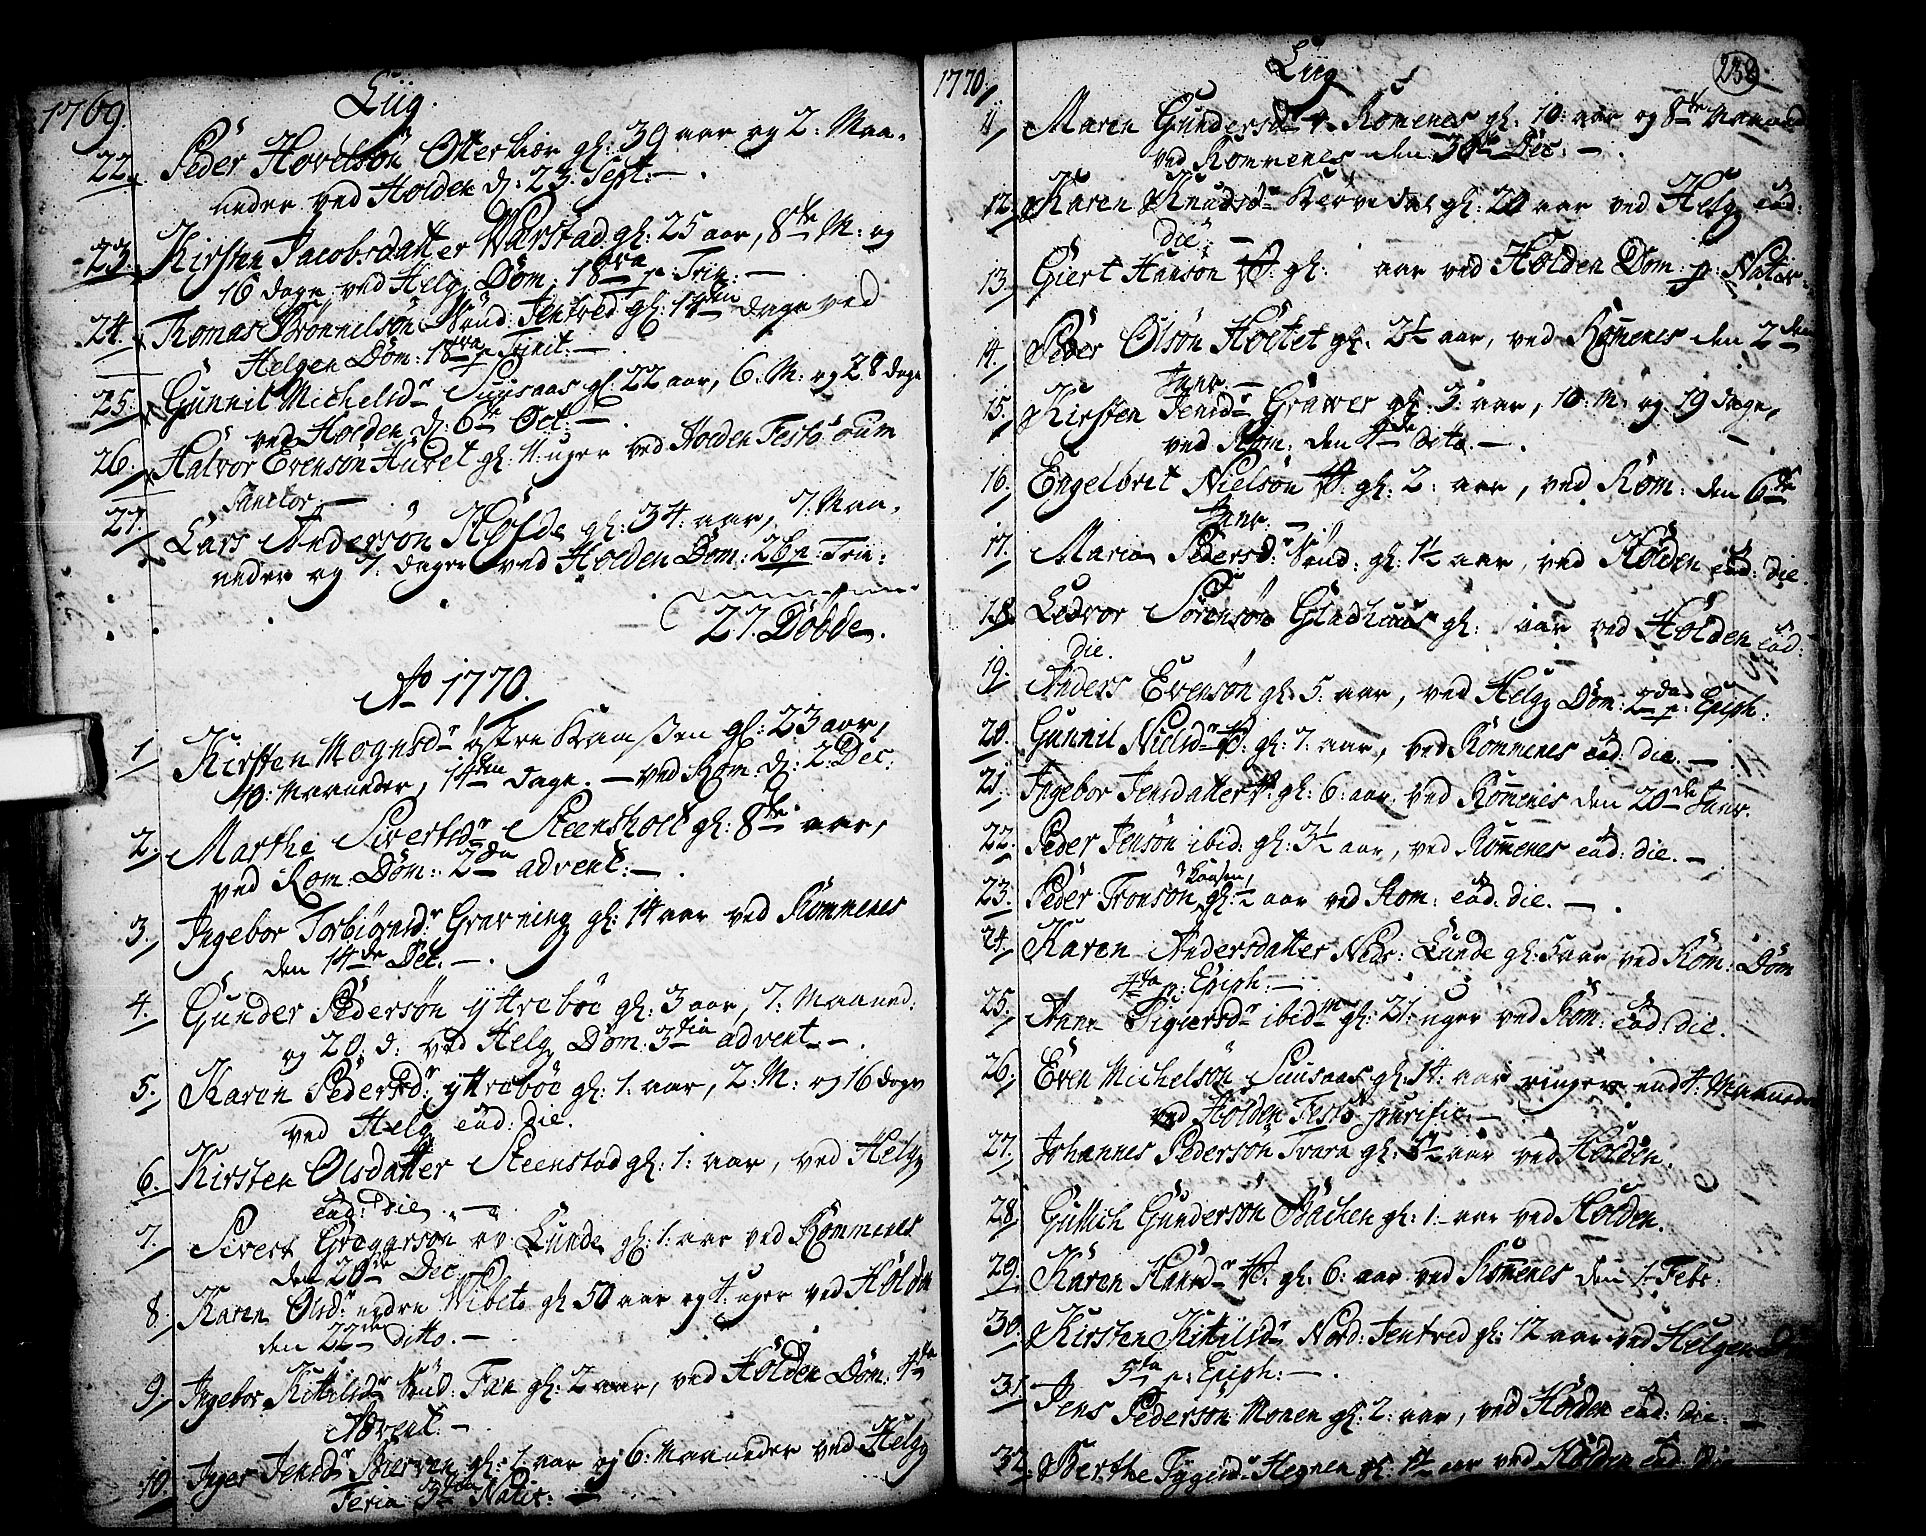 1769.
Liig.
22. Peder Hovelsøn Otterkiær gl: 39 aar og 2: Maa-
neder ved Holden d: 23. Sept: —.
23. Kirsten Jacobsdatter Warstad gl: 25 aar, 8te M: og
16 dage ved Helg. Dom: 18va p. Trin: —
24. Thomas Brønnelsøn Sund: Jentved gl: 14ten dage ved
Helgen Dom: 18va p Trinit: —
25. Gunnil Michelsdr Suusaas gl: 22 aar, 6. M: og 28 dage
ved Holden d: 6te Oct: —.
26. Halvor Evensøn Huset gl: 4: uger ved Holden Festo oum
Sanctor: —
27. Lars Andersøn Holde gl: 34: aar, 7. Maa-
neder og 7. dage ved Holden Dom: 26 p: Trin:
27. Døbde.
Ao 1770.
1. Kirsten Mognsdr østre Kamßen gl: 23 aar,
10: Maaneder, 14ten dage. — ved Rom: d: 2. Dec:
2. Marthe Sivertsdr Steensholt gl: 8te aar,
ved Rom: Dom: 2da advent: —.
3. Ingebor Torbiørnsdr Gravning gl: 14 aar ved Rommenes
den 14de Dec. —.
4. Gunder Pedersøn yttrebøe gl: 3 aar, 7: Maaned:
og 20. d: ved Helg. Dom: 3tia advent. —.
5. Karen Pedersdr yttrebøe gl: 1. aar, 2: M: og 16 dage
ved Helg. ead: die.
6. Kirsten Olsdatter Steenstad gl: 1: aar, ved Helg.
ead: die. —
7. Sivert Greggersøn øv: Lunde gl: 1: aar ved Rommenes
den 20de Dec. —
8. Karen Olsdr nedre Wibeto gl: 50 aar og 4: uger ved Holden
den 22de ditto. —
9. Ingebor Kittilsdr Sund: Fæn gl: 2 aar, ved Holden Dom: 4ta
Advent. —
10. Inger Jensdr Bierven gl: 1. aar og 6. Maaneder ved Helg.
Feria 3tia Natit: —
1770.
Liig
238.
11. Maren Gundersdr v. Romenes gl: 10: aar og 8te Maaneder
ved Rommenes den 30te Dec: —.
12. Karen Knudsdr gl: 20 aar ved Helg. ead:
die: —
13. Giert Hansøn gl: aar ved Holden Dom: p: Nativ.
14. Peder Olsøn Holtet gl: 2½ aar, ved Romenes den 2den
Janr. —
15. Kirsten Jensdr Grawer gl: 3: aar, 10: M: og 19 dage,
ved Rom: den 4de dito. —.
16. Engelbret Nielsøn gl: 2: aar, ved Rom: den 6te
Janr. —
17. Maria Pedersdr Sund: gl: 1½ aar, ved Holden ead: die.
18. Ledvor Sørensøn Gladhuus gl: aar ved Holden ead:
die.
19. Anders Evensøn gl: 5. aar, ved Helg. Dom: 2da p: Epiph:
20. Gunnil Nielsdr gl: 7: aar, ved Rommenes ead: die. —
21. Ingebor Jensdatter gl: 6: aar: ved Romenes den 20de Janr.
22. Peder Jensøn ibid: gl: 3½ aar, ved Romenes ead: die. —
23. Peder Tronsøn Kaasen, gl: ½ aar ved Rom: ead: die. —.
24. Karen Andersdatter Nedr: Lunde gl: 5 aar ved Rom: Dom
4ta p: Epiph: —
25. Anne Sigversdr ibidm gl: 21: uger ved Rom: ead: die.
26. Even Michelsøn Suusaas gl: 14: aar ringere end 4: Maaneder
ved Holden Festo purific: —
27. Johannes Pedersøn Tvara gl: aar ved Holden.
28. Gullich Gundersøn Bachen gl: 1. aar ved Holden.
29. Karen Hansdr gl: 6: aar ved Romenes den 1. Febr:
30. Kirsten Kittilsdr Nord: Jentved gl: 12 aar ved Helgen
5ta p: Epiph: —.
31. Jens Pedersøn Monen gl: 2: aar, ved Holden ead: die: —
32. Berthe Tygesdr Hegnen gl: 1½ aar ved Holden ead: die